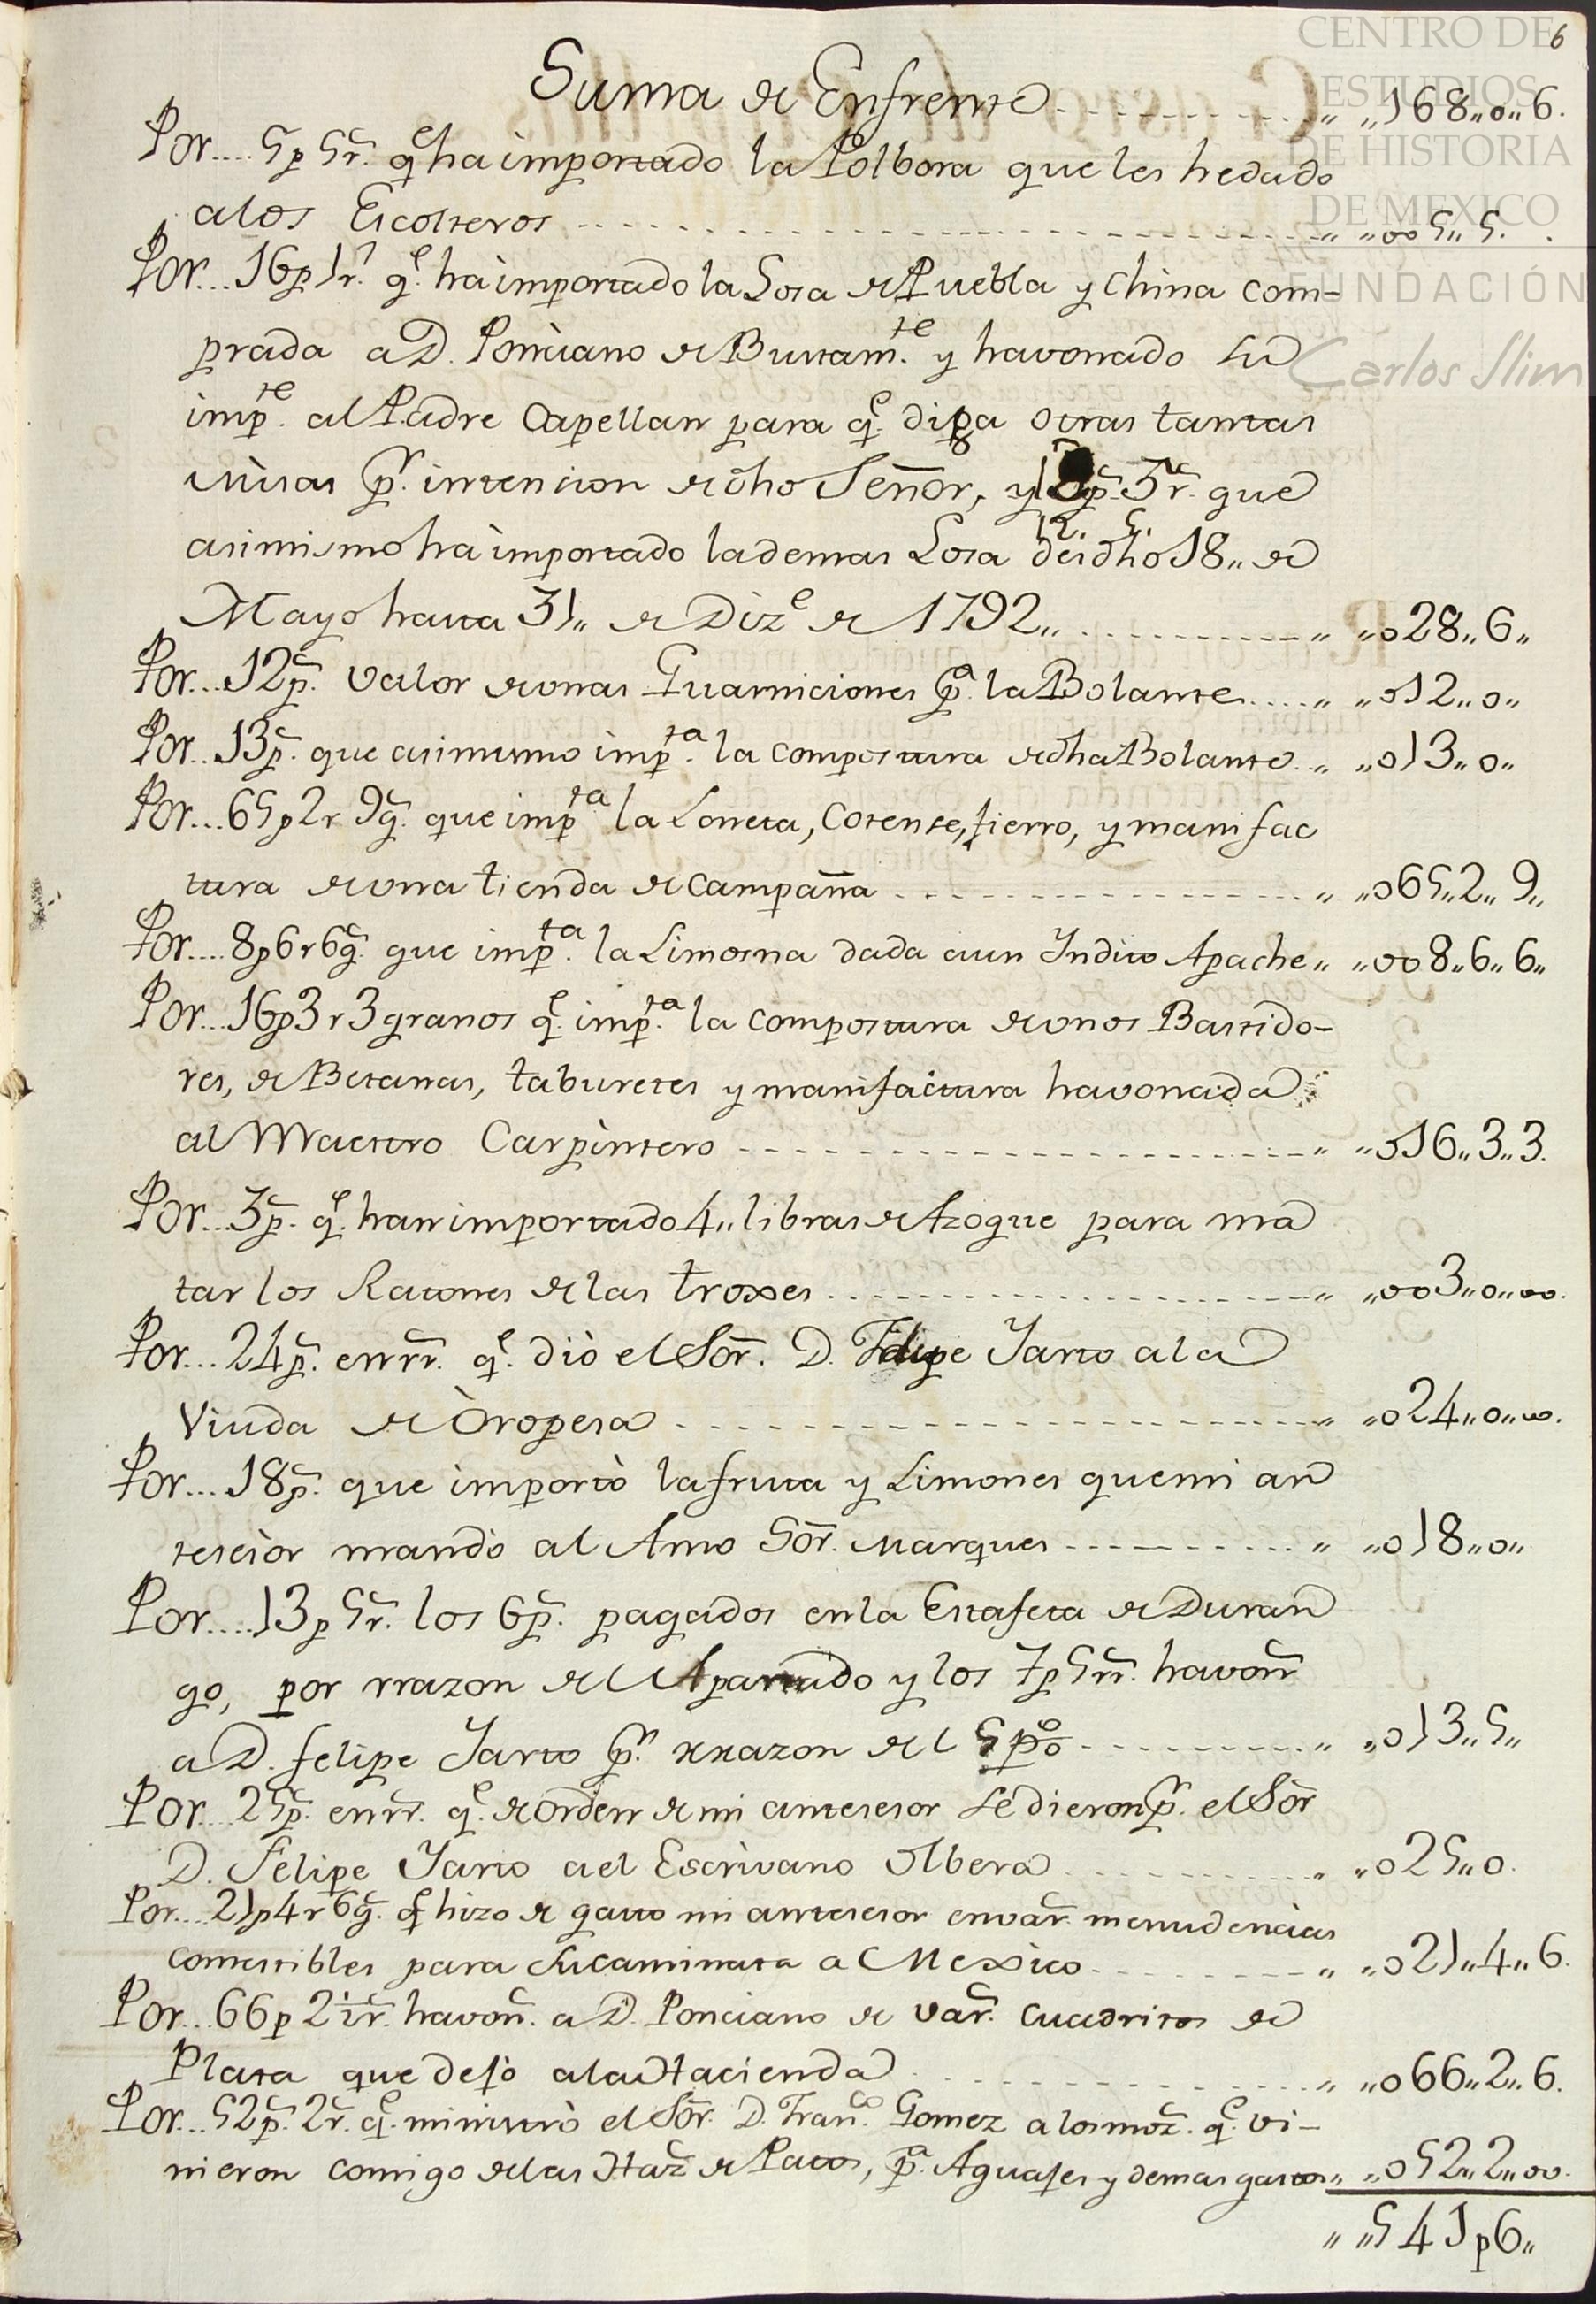 CENTRO DE
ESTUDIOS
DE HISTORIA
DE MEXICO
FUNDACIÓN
Carlos Slim
6
Suma de Enfrente „ „168„0„6.
Por.... 5p 5r. q.e ha importado la Polbora que les he dado
a los Escolteros „ „005„5.
Por... 16p 1r. q.e hà importado la Losa de Puebla y China com-
prada a D. Ponciano de Bustam.te y havonado su
imp.te al Padre Capellan para q.e diga otras tantas
misas p.r intencion de dho Señor, y 12p. 5r. que
asimismo hà importado la demas Losa desde dho 18„ de
Mayo hasta 31„ de Diz.e de 1792„ „ „028„6„
Por... 12p. valor de unas Guarniciones p.a la Bolante.... „ „012„0„
Por... 13p. que asimismo imp.ta la compostura de dha Bolante „ „013„0„
Por... 65p 2r 9g. que imp.ta la Loneta, Cotense, fierro, y manifac
tura de una tienda de campaña „ „065„2„9„
Por.... 8p 6r 6g. que imp.ta la Limosna dada a un Yndito Apache „ „008„6„6„
Por... 16p 3r 3 granos q.e imp.ta la compostura de unos Bastido-
res, de Betanas, taburetes y manifactura havonada
al Maestro Carpintero „ „016„3„3.
Por... 3p. q.e han importado 4„ libras de Azogue para ma
tar los Ratones de las troxes „ „003„0„00.
Por... 24p. en rr. q.e diò el Sor. D. Felipe Yarto a la
Viuda de Òropesa „ „024„0„00.
Por... 18p. que importò la fruta y Limones que mi an
tesesor mandò al Amo Sor. Marques „ „018„0„
Por.... 13p 5r. los 6p. pagados en la Estafeta de Duran
go, por rrazon del Apartado y los 7p 5rr. havon
a D. Felipe Yarto p.r rrazon del 5 p% „ „013„5„
Por... 25p. en rr. q.e de orden de mi antesesor se dieron p.r el Sor
D. Felipe Yarto a el Escrivano Olbera „ „025„0.
Por.... 21p 4r 6g. q.e hizo de gasto mi antesesor en var. menudencias
comestibles para su caminata a Mexico „ „021„4„6.
Por... 66p 2½r. havon. a D. Ponciano de var. cuadritos de
Plata que dejò a la Hacienda „ „066„2„6.
Por... 52p. 2r. q.e ministrò el Sor. D. Fran.co Gomez a los moz. q.e vi-
nieron comigo de las Haz de Patos, p.a Aguajes y demas gastos „ „052„2„00.
„ „541p6„